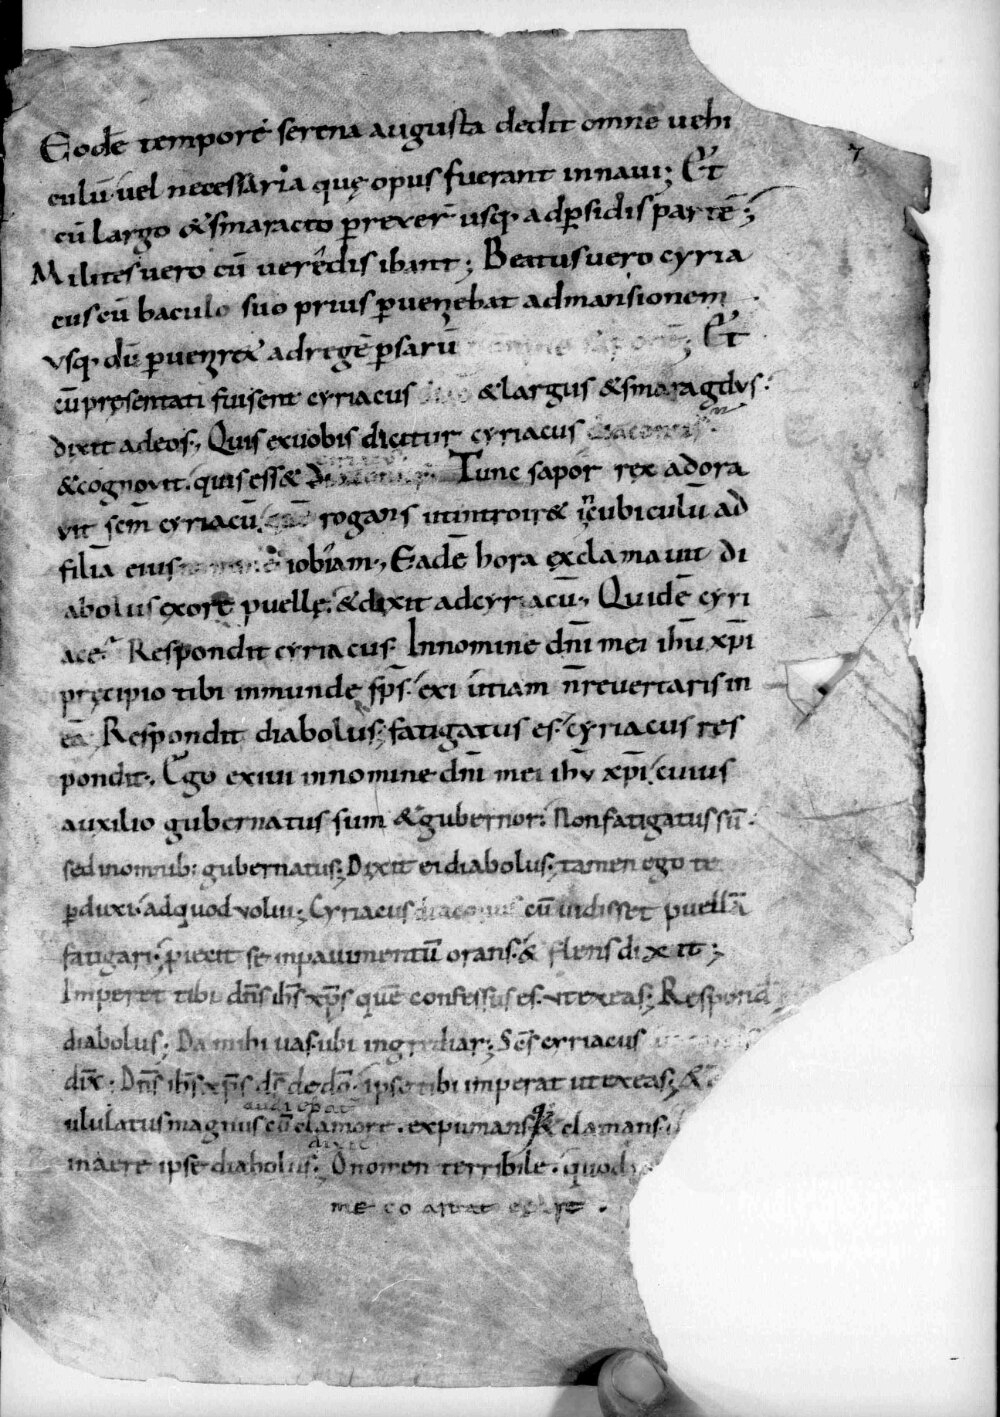 7
Eodē tempore serena augusta dedit omne uehi
culū uel necessaria quę opus fuerant innaui; Et
cū largo & smaracto ꝑrexer̄ usq· adꝑsidis partē;
Milites uero cū uerędis ibant; Beatus uero cyria
cus cū baculo suo prius ꝑueniebat admansionem
vsq· dū ꝑuenirex adregē ꝑsarū Et
cū pręsentati fuisent cyriacus & largus & smaragdus·
dixit adeos·, Quis exuobis dicitur cyriacus
& cognovit· quis ess& Tunc sapor rex adora
vit scm̄ cyriacū rogans utintroir& in cubiculū ad
filiā eius iobiam·, Eadē hora exclamauit di
abolus exore puellę· & dixit adcyriacū·, Quidē cyri
ace Respondit cyriacus· Innomine dn̄i mei ihū xp̄i
pręcipio tibi inmunde sp̄s· exi utiam n̄ reuertaris in
eā Respondit diabolus; fatigatus es· cyriacus res
pondit·, Ego exiui innomine dn̄i mei ihū xp̄i cuius
auxilio gubernatus sum & gubernor· Nonfatigatus sū·
sed inomnib: gubernatus; Dixit ei diabolus; tamen ego te
ꝑduxi· adquod volui; Cyriacus diaconus cū uidisset puellā
fatigari· proiecit se inpauimentū orans· & flens dixit;
Imperet tibi dn̄s ihs̄ xp̄s quē confessus es· vt exeas; Respond
diabolus; Da mihi uas· ubi ingrediar; Scs̄ cyriacus
dix̄· Dn̄s ihs̄ xp̄s ds̄ dedō· ipse tibi imperat ut exeas; &
audiebat
ululatus magnus cū clamore· expumans & clamans·
dixit
inaere ipse diabolus; O nomen terribile· quod
me coartat exire·